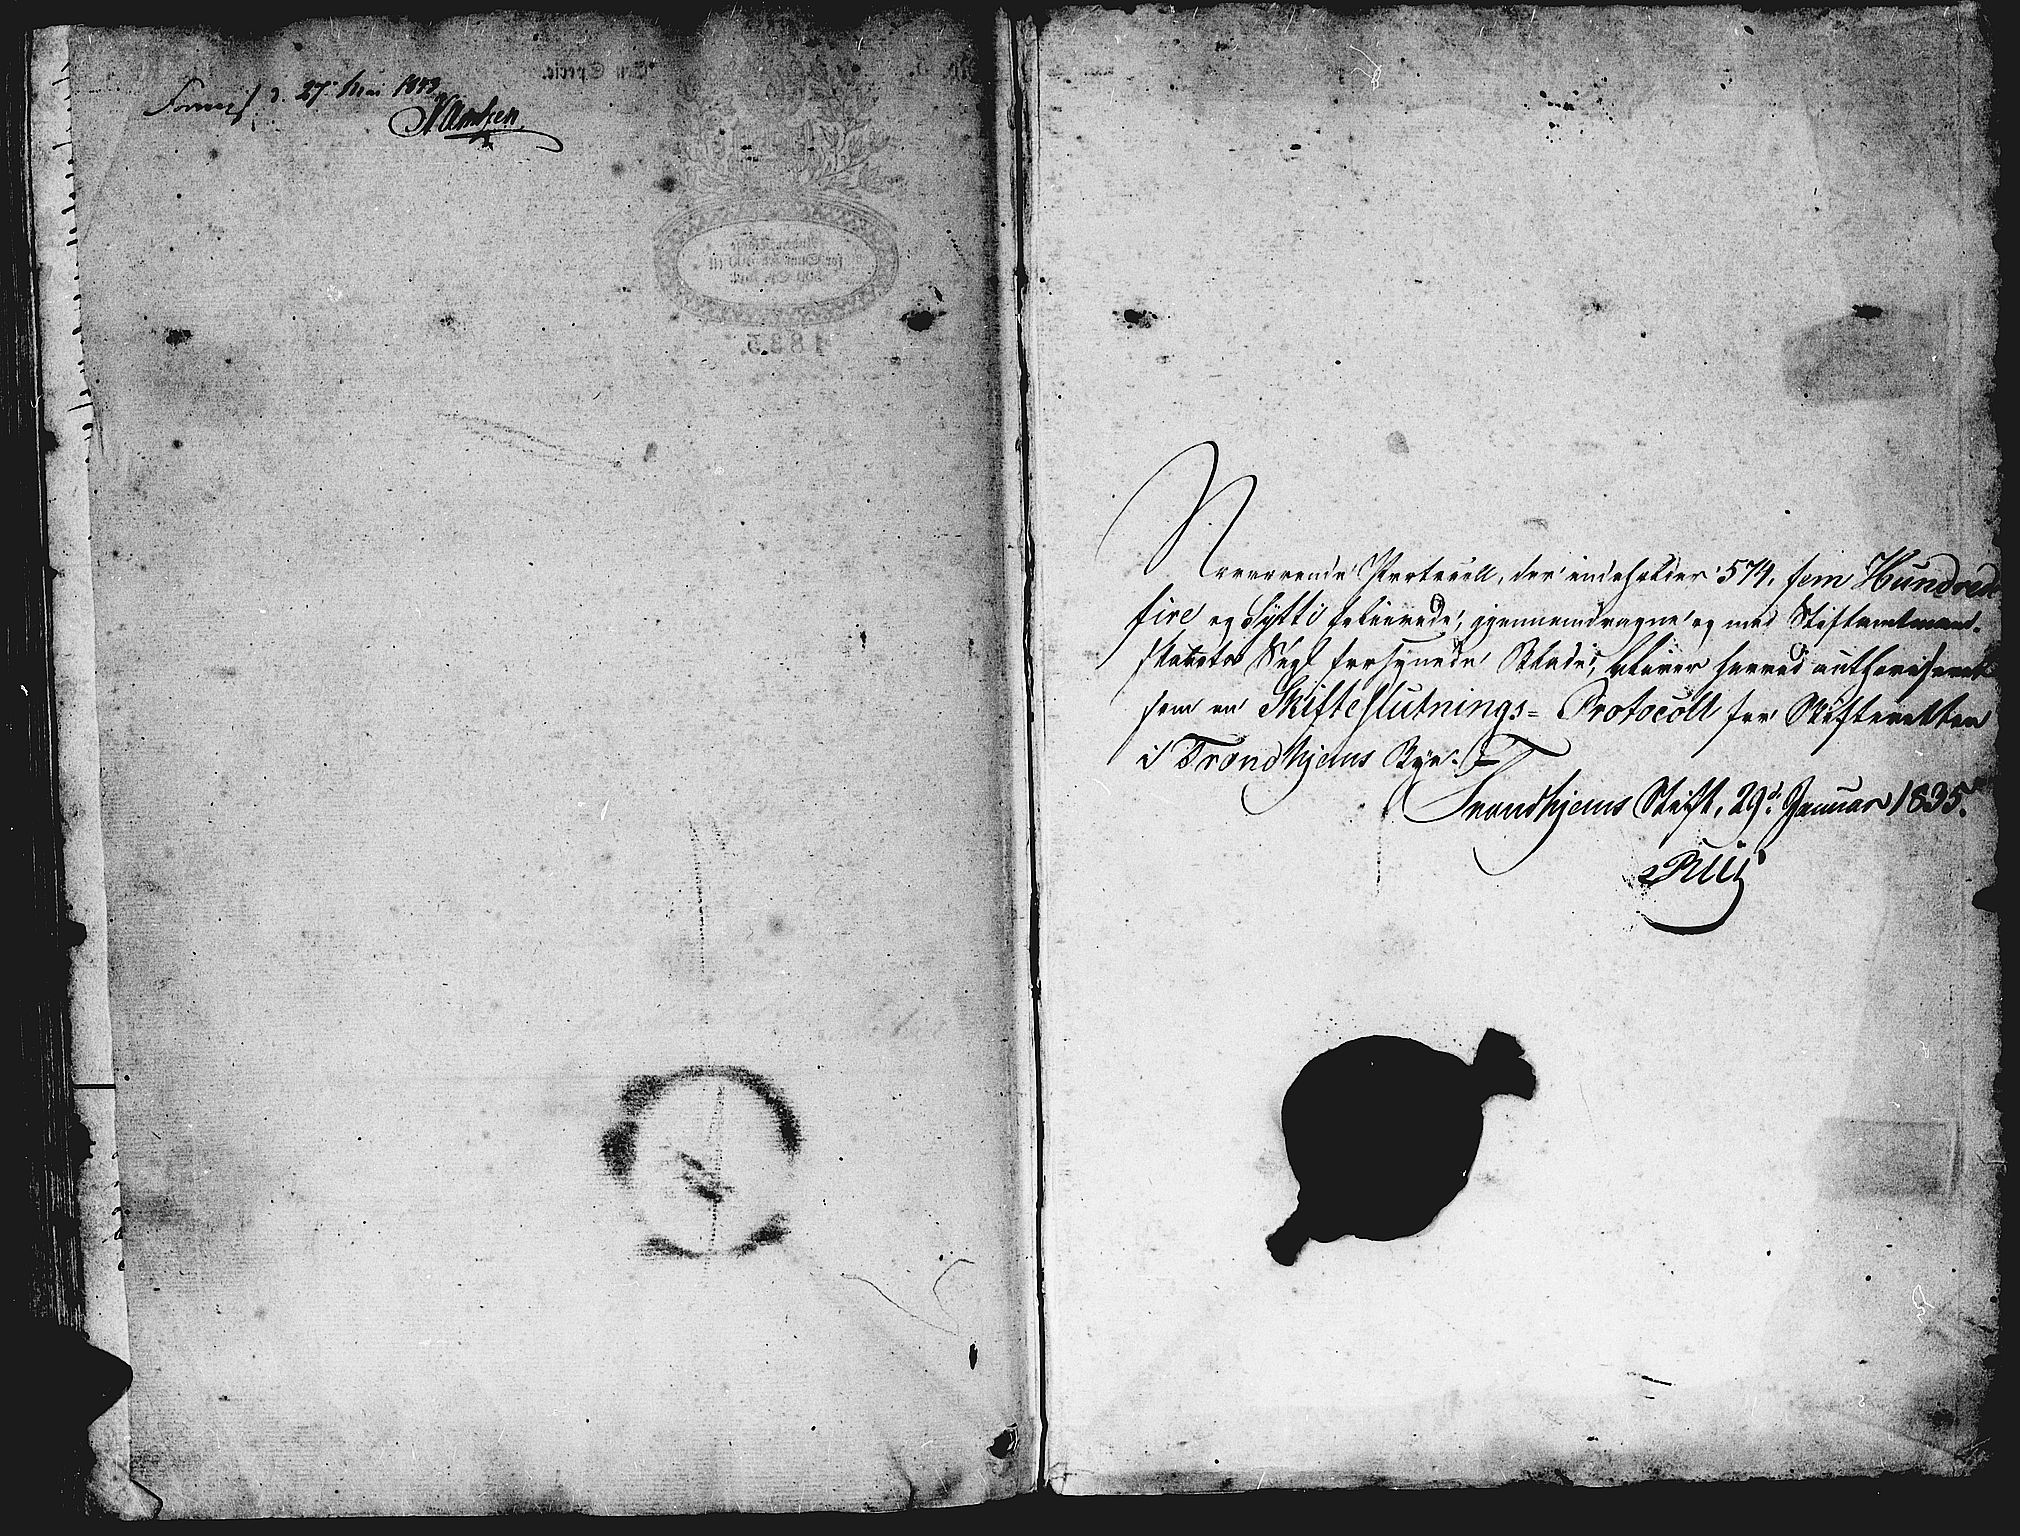 d. 27 Mai
Nærværende Protocoll, der indeholder 574, fem Hundred
fire og Sytti folierede, gjennemdragne og med Stiftamtmand-
skabets Segl forsynede Blade, bliver herved authoriseret
som en Skifteslutnings= Protocoll for Skifteretten
i Trondhjems Bye.
Trondhjems Stift, 29d. Januar 1835.
1835.